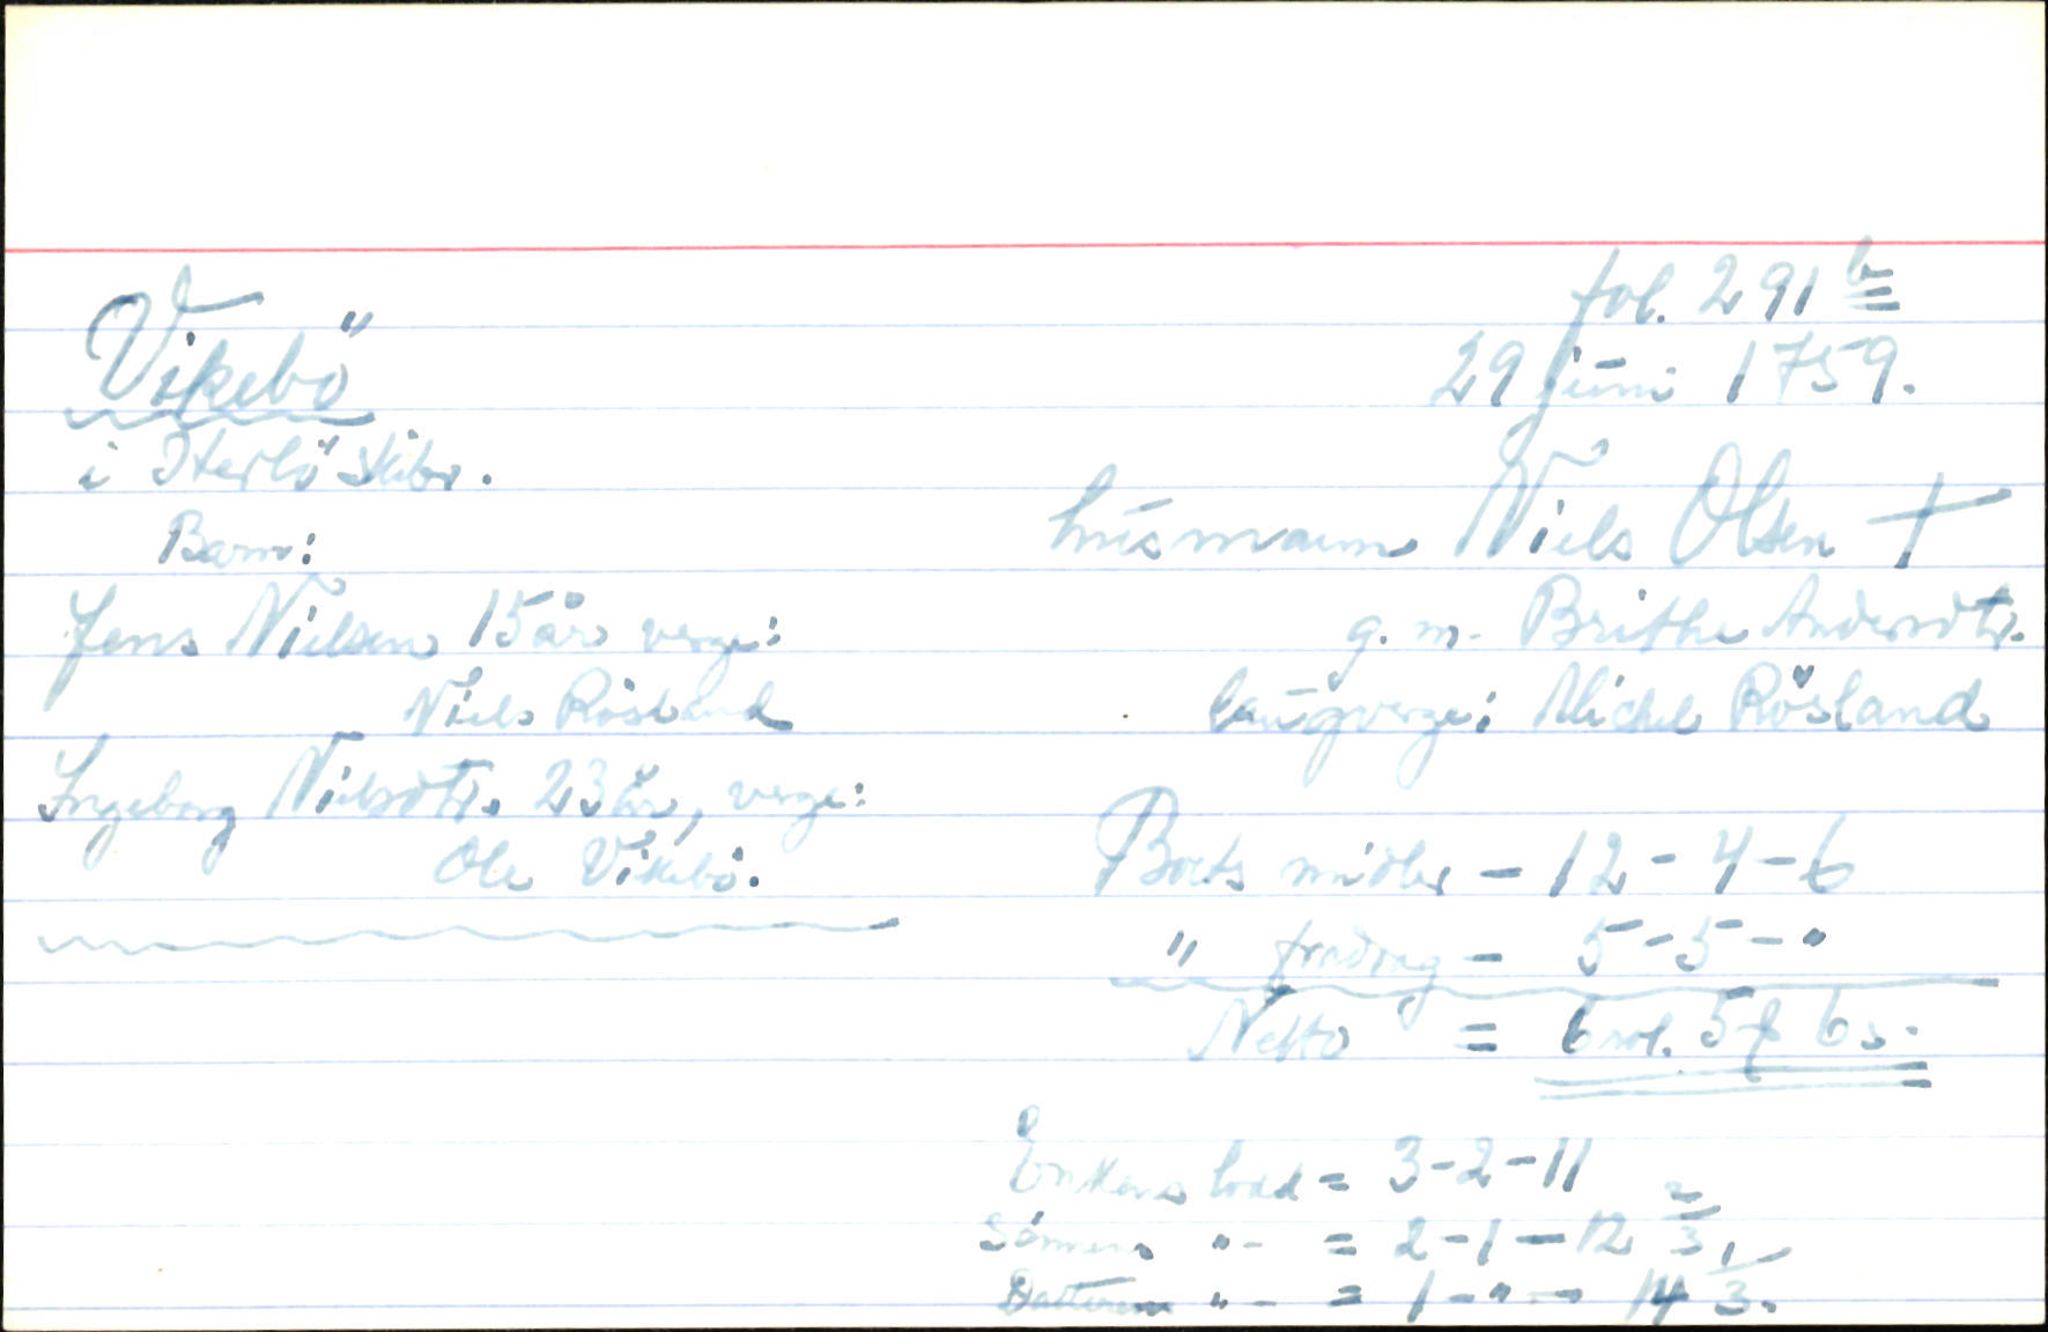 fol. 291 b
Vikebö
29 juni 1759.
i Herlö skibr.
husmann Niels Olsen †
Barn:
Jens Nielsen 15 år verge:
Niels Rösland
g. m. Brithe Andersdtr.
laugverge: Michel Rösland
Ingeborg Nielsdtr. 23 år, verge:
Ole Vikebö.
Boets midler - 12 - 4 - 6
" fradrag - 5 - 5 - "
Netto = 6 rd. 5 # 6 s.
Enkens lodd = 3 - 2 - 11
Sönnens " - = 2 - 1 - 12 2/3
Datteren " - = 1 - " - 14 1/3.